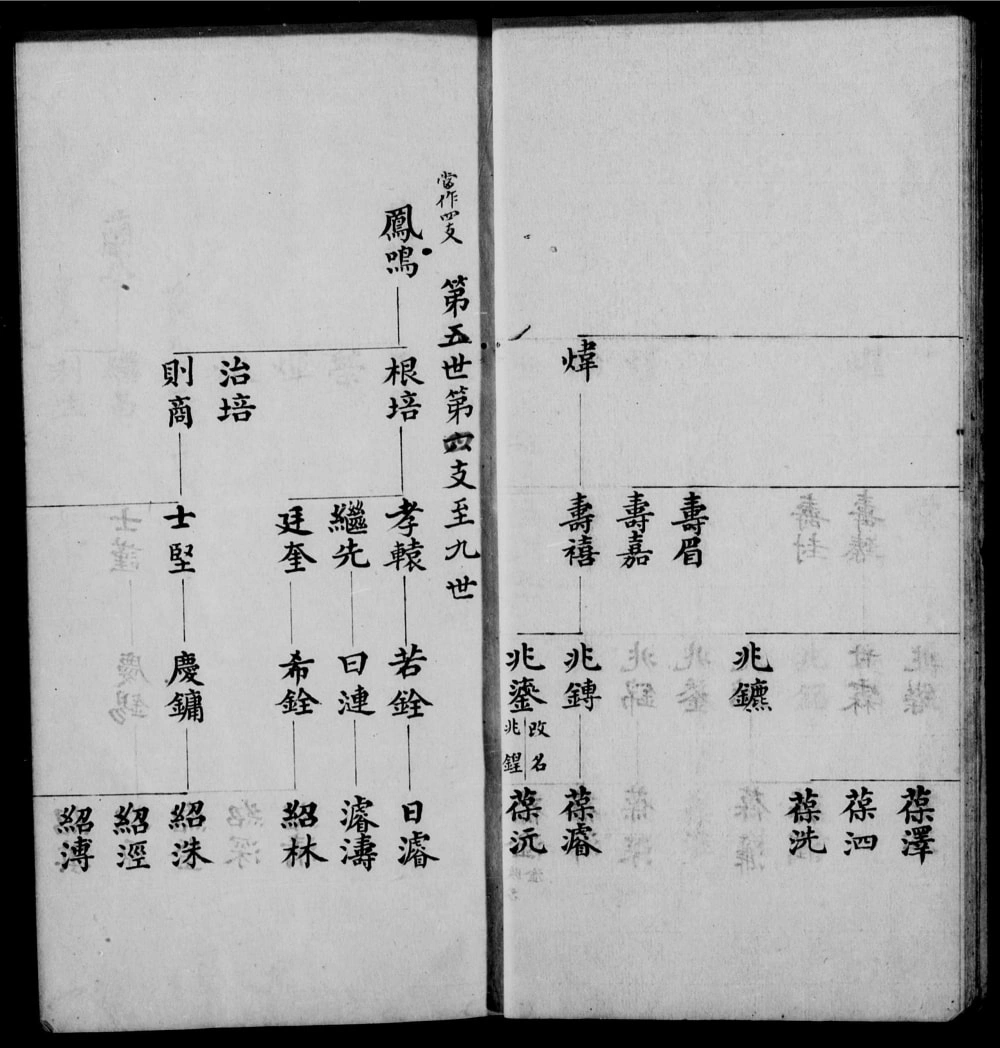 煒
壽眉
壽嘉
壽禧
兆鑣
兆鏄
兆鎏
改名
兆鍠
葆澤
葆泗
葆洗
葆濬
葆沅
第五世第四支至九世
當作四支
鳳鳴
根培
治培
則商
孝轅
繼先
廷奎
士堅
若銓
曰漣
希銓
慶鏞
日濬
濬濤
紹林
紹洙
紹涇
紹溥